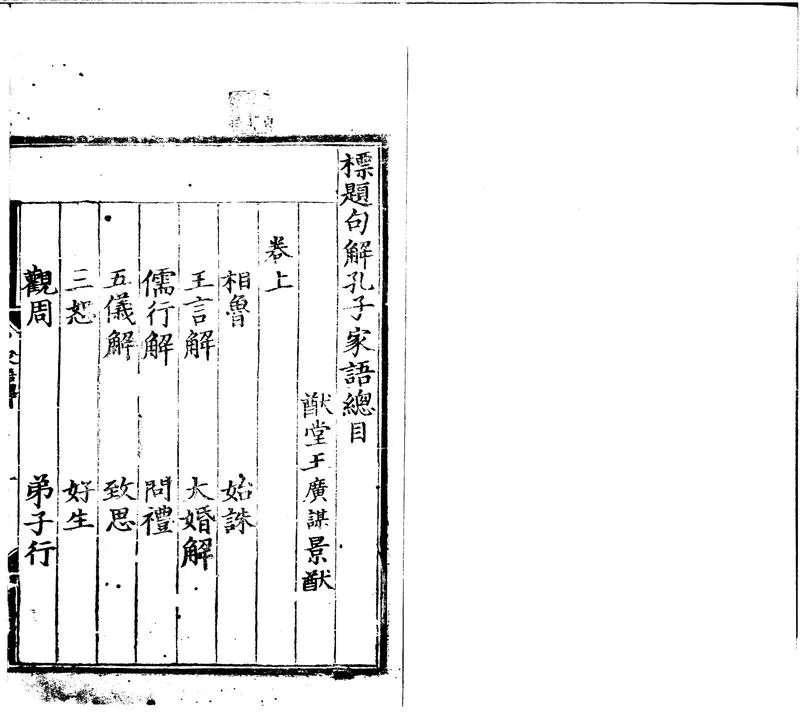 標題句解孔子家語總目
猷堂王廣謀景猷
卷上
相魯 始誅
王言解 大婚解
儒行解 問禮
五儀解 致思
三恕 好生
觀周 弟子行